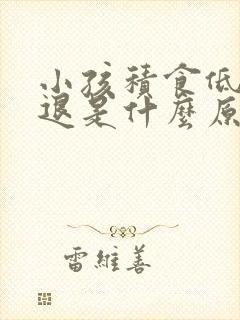 小孩積食低
退是什麼原
雷維善